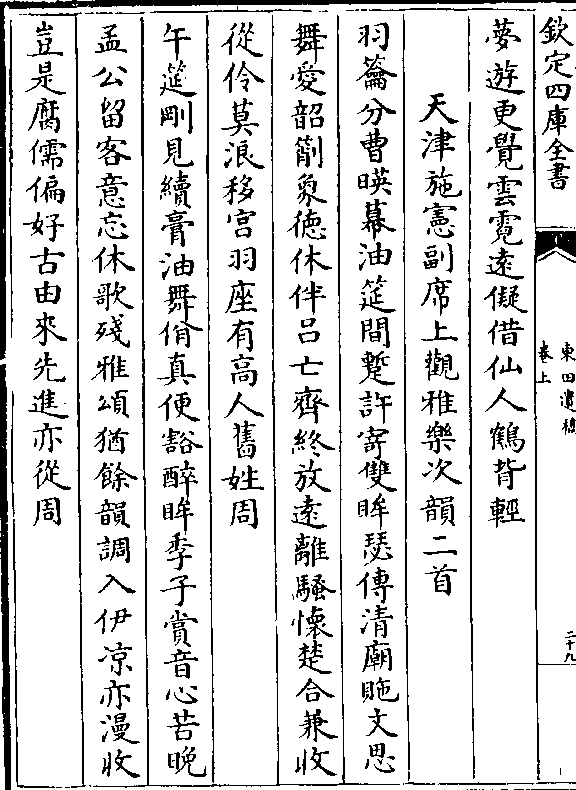 欽定四庫全書
東田遺稿
卷上
二十九
夢遊更覺雲霓遠儗借仙人鶴背輕
天津施憲副席上觀雅樂次韻二首
羽籥分曹暎幕油筵間蹔許寄雙眸瑟傳清廟貤文思
舞愛韶劄象德休伴吕亡齊終放逺離騷懷楚合兼收
從伶莫浪移宫羽座有高人舊姓周
午筵剛見續膏油舞佾真便豁醉眸季子賞音心苦晩
孟公留客意忘休歌殘雅頌猶餘韻調入伊凉亦漫收
豈是腐儒偏好古由來先進亦從周